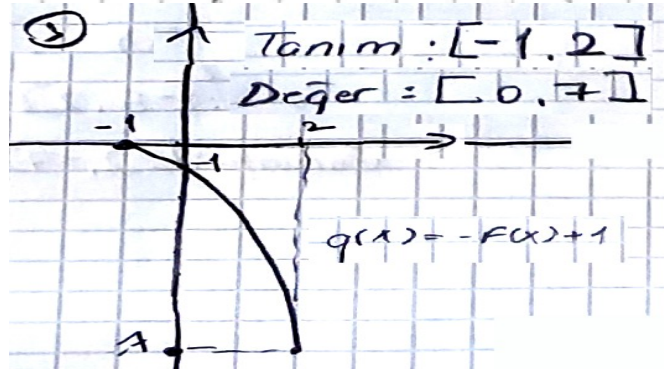 3 Tanım : [-1, 2]
Değer : [0, 7]
-1 2
-1
g(x) = -F(x) + 1
7